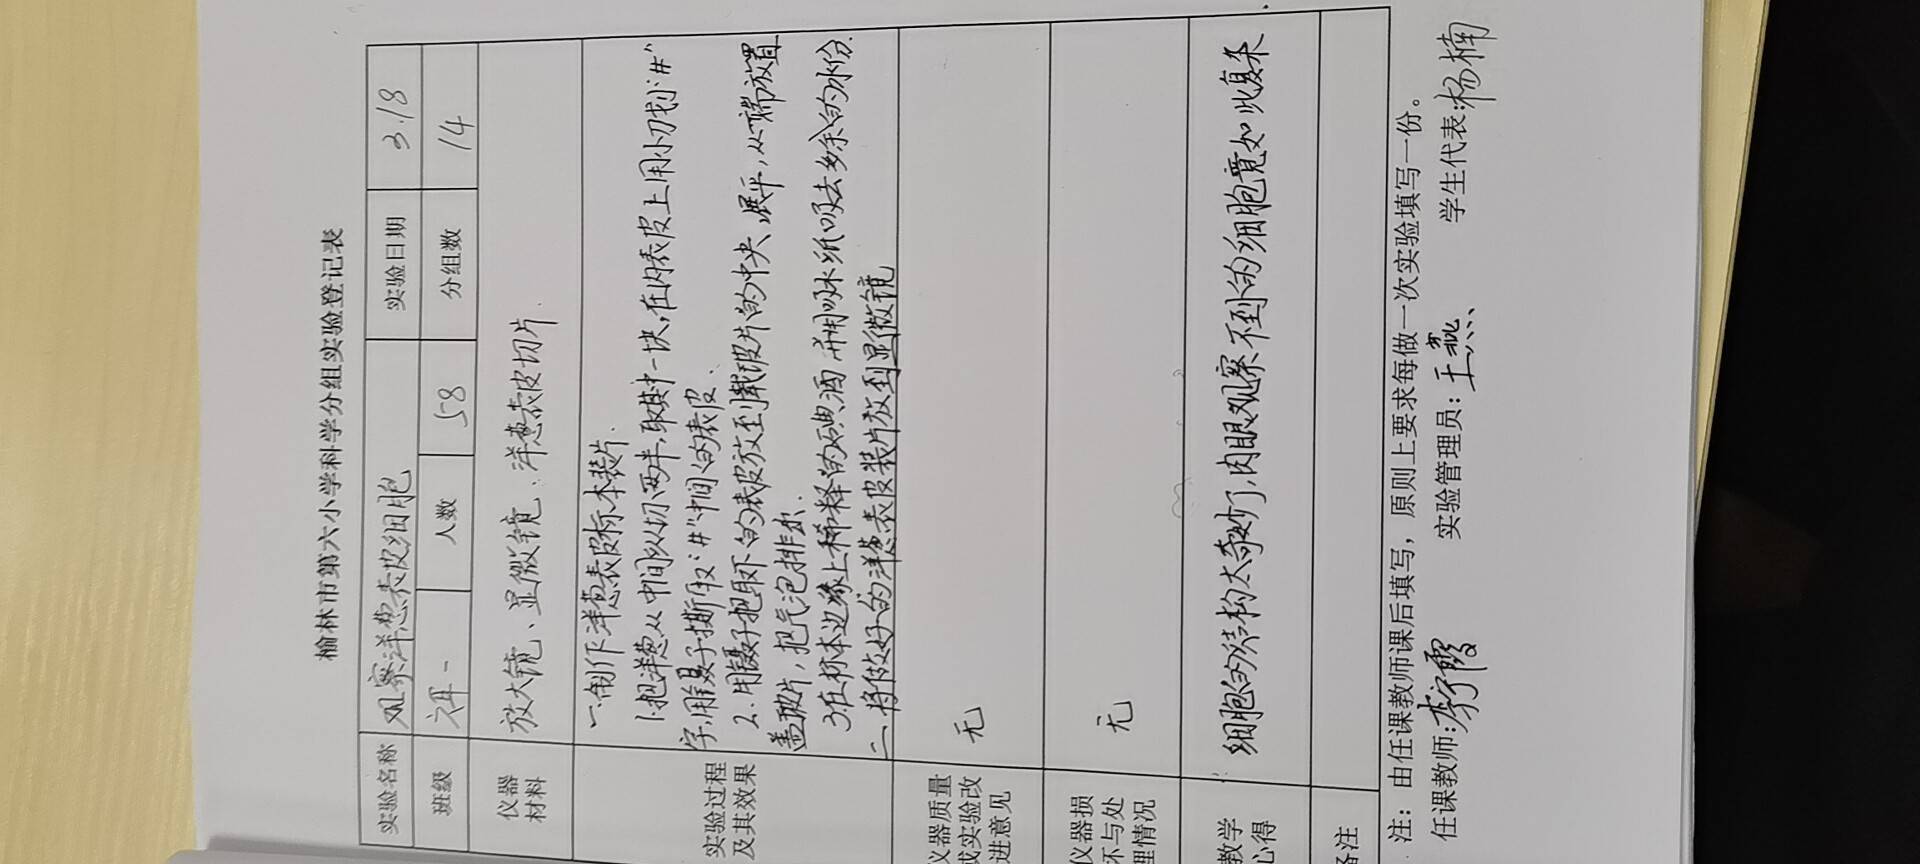 榆林市第六小学科学分组实验登记表
实验名称 观察洋葱表皮细胞 实验日期 3.18
班级 人数 58 分组数 14
仪器
材料
放大镜、显微镜、洋葱表皮切片.
实验过程
及其效果
一.制作洋葱表皮标本装片.
1.把洋葱从中间纵切两半,取其中一块,在内表皮上用小刀划"井"
字,用镊子撕取"井"中间的表皮.
2.用镊子把取下的表皮放到载玻片的中央,展平,从一端放置
盖玻片,把气泡排出.
3.在标本边缘上稀释的碘酒并用吸水纸吸去多余的水份.
二.将做好的洋葱表皮装片放到显微镜
仪器质量
或实验改
进意见
无
仪器损
坏与处
理情况
无
教学
心得
细胞的结构太奇妙了,肉眼观察不到的细胞竟如此复杂
备注
注：由任课教师课后填写，原则上要求每做一次实验填写一份。
任课教师:李霞 实验管理员:王燕 学生代表:杨楠